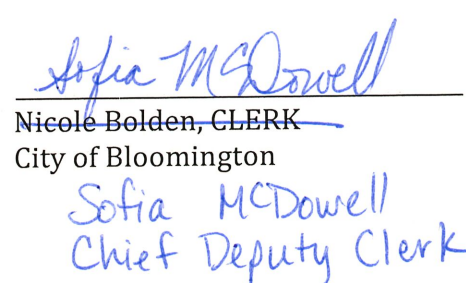 Sofia McDowell
Nicole Bolden, CLERK
City of Bloomington
Sofia McDowell
Chief Deputy Clerk